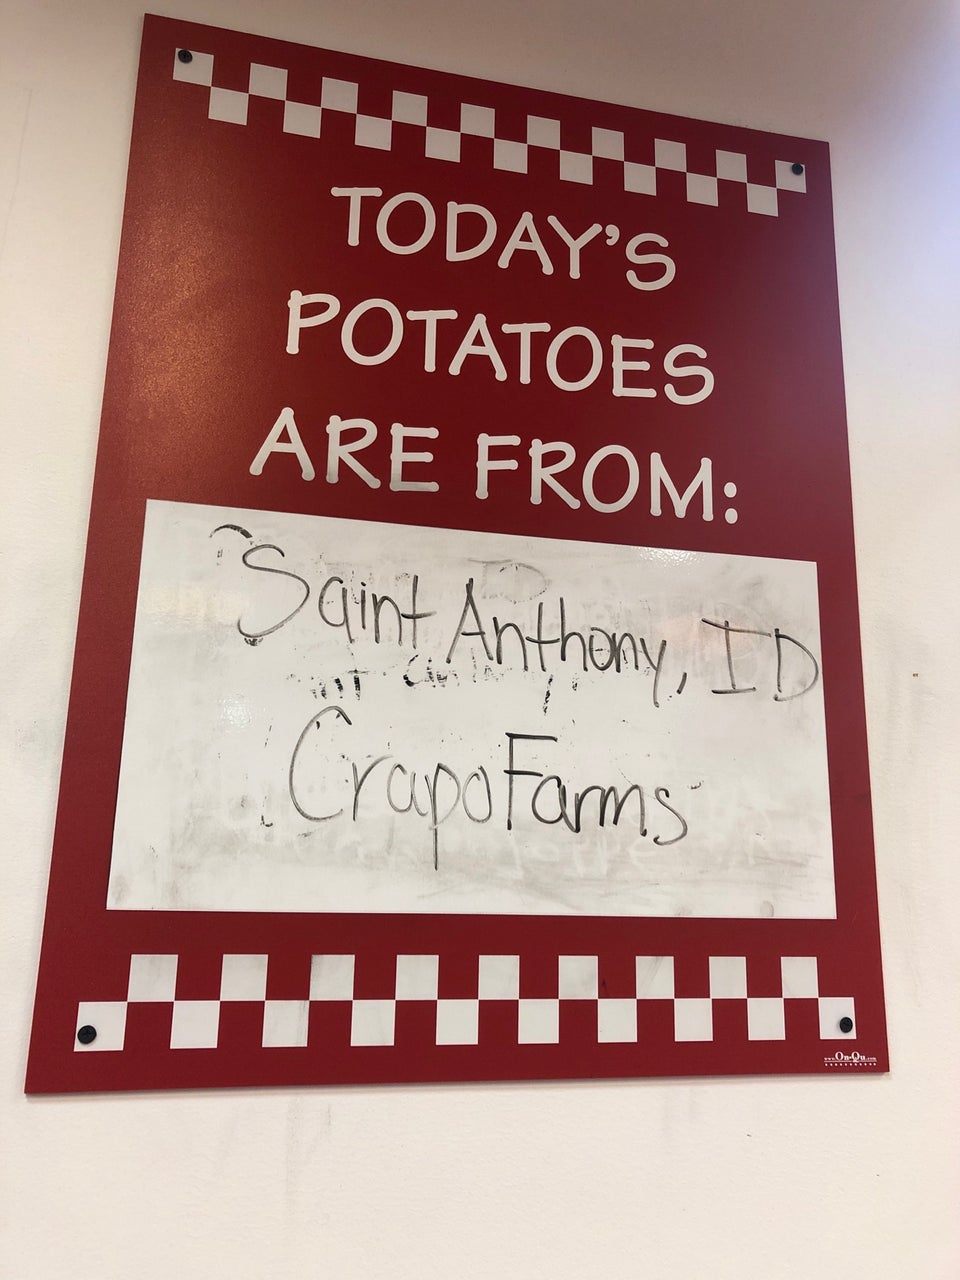 TODAY'S
POTATOES
ARE FROM:
Saint Anthony, ID
Crapo Farms
www.On-Qu.com